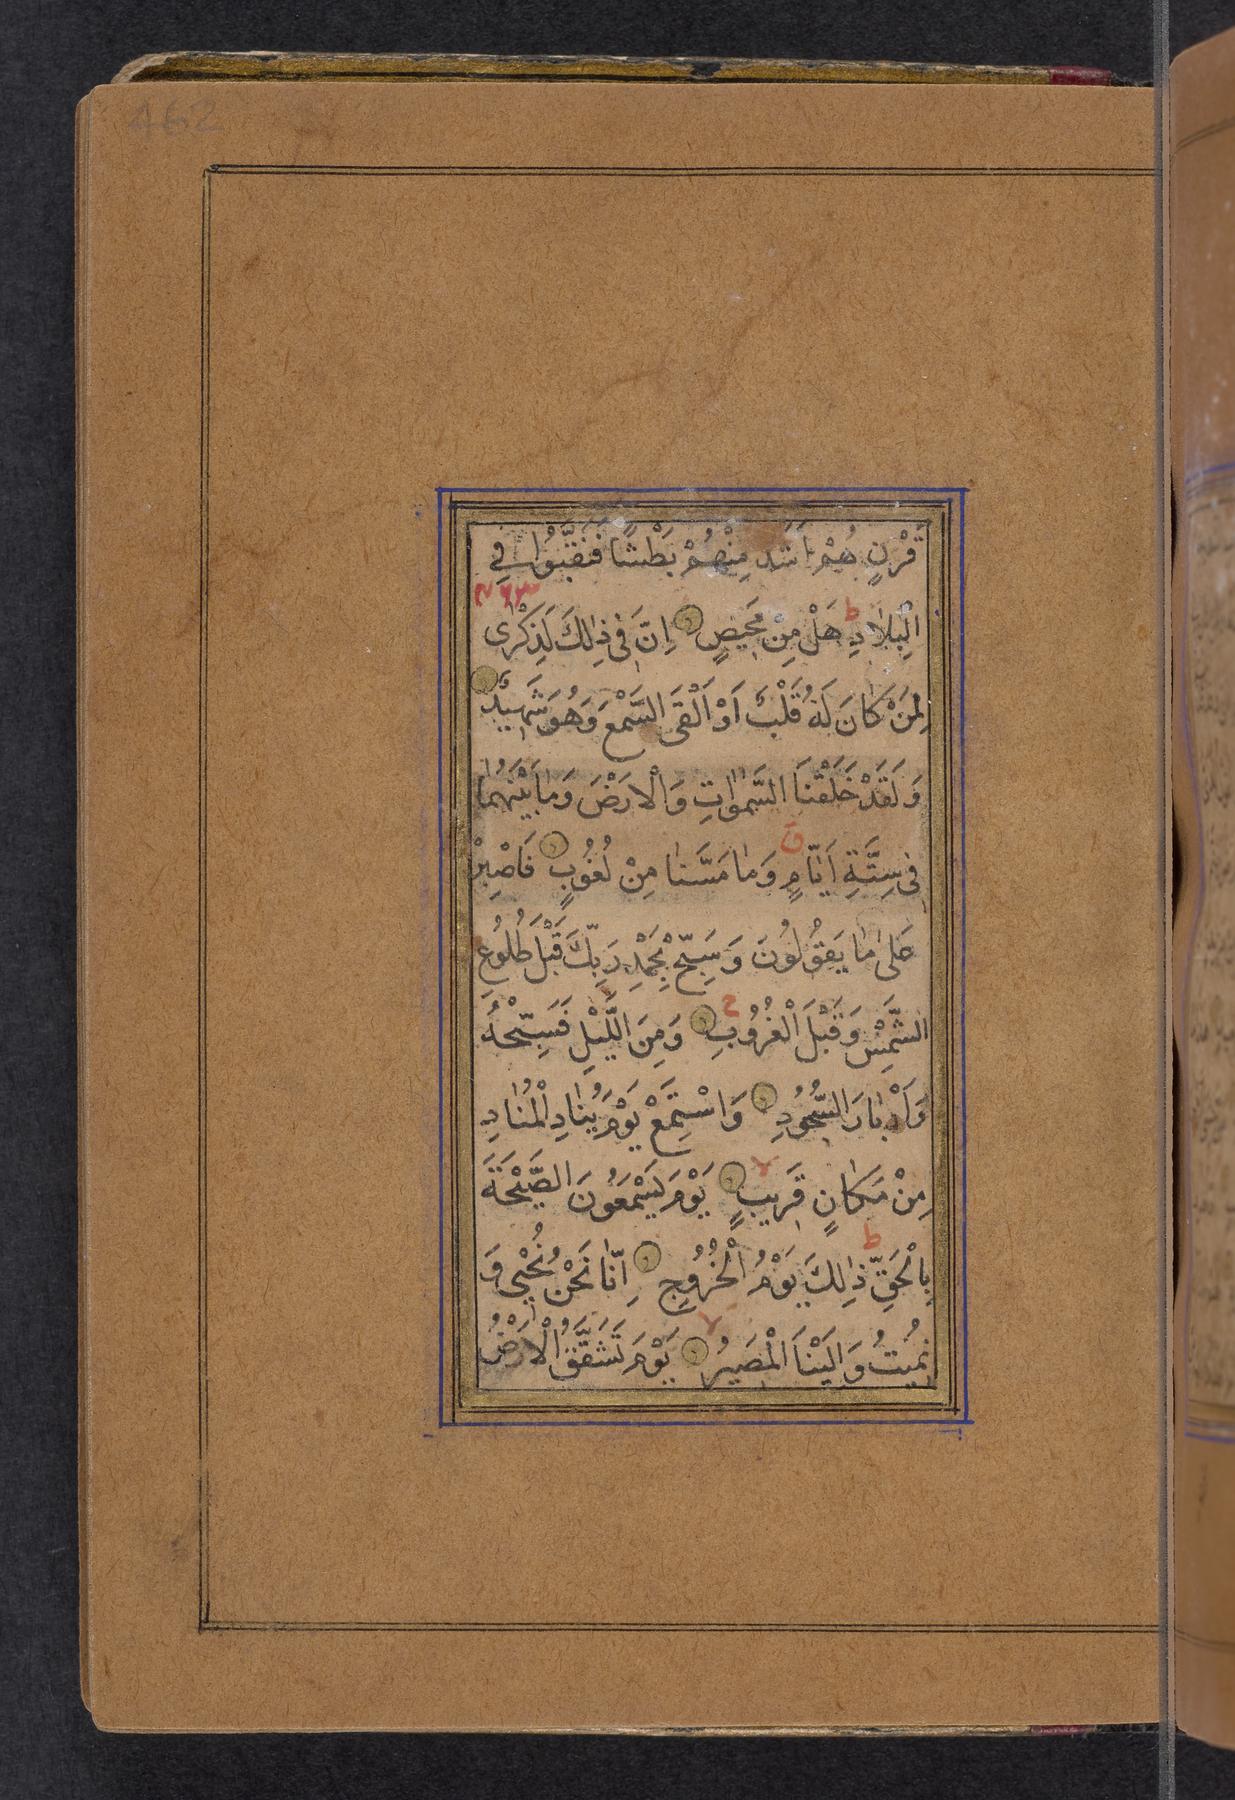 462
قَرْنٍ هُمْ اَشَدُّ مِنْهُمْ بَطْشًا فَنَقَّبُوا فِي
الْبِلَادِ هَلْ مِنْ مَحِيصٍ اِنَّ فِى ذٰلِكَ لَذِكْرٰى
لِمَنْ كَانَ لَهُ قَلْبٌ اَوْ اَلْقَى السَّمْعَ وَهُوَ شَهِيدٌ
وَلَقَدْ خَلَقْنَا السَّمٰوٰاتِ وَالْاَرْضَ وَمٰا بَيْنَهُمٰا
فِى سِتَّةِ اَيّٰامٍ وَمٰا مَسَّنٰا مِنْ لُغُوبٍ فَاصْبِرْ
عَلٰى مٰا يَقُولُونَ وَسَبِّحْ بِحَمْدِ رَبِّكَ قَبْلَ طُلُوعِ
الشَّمْسِ وَقَبْلَ الْغُرُوبِ وَمِنَ اللَّيْلِ فَسَبِّحْهُ
وَاَدْبٰارَ السُّجُودِ وَاسْتَمِعْ يَوْمَ يُنٰادِ الْمُنٰادِ
مِنْ مَكٰانٍ قَرِيبٍ يَوْمَ يَسْمَعُونَ الصَّيْحَةَ
بِالْحَقِّ ذٰلِكَ يَوْمُ الْخُرُوجِ اِنّٰا نَحْنُ نُحْيِى وَ
نُمِيتُ وَاِلَيْنَا الْمَصِيرُ يَوْمَ تَشَقَّقُ الْاَرْضُ